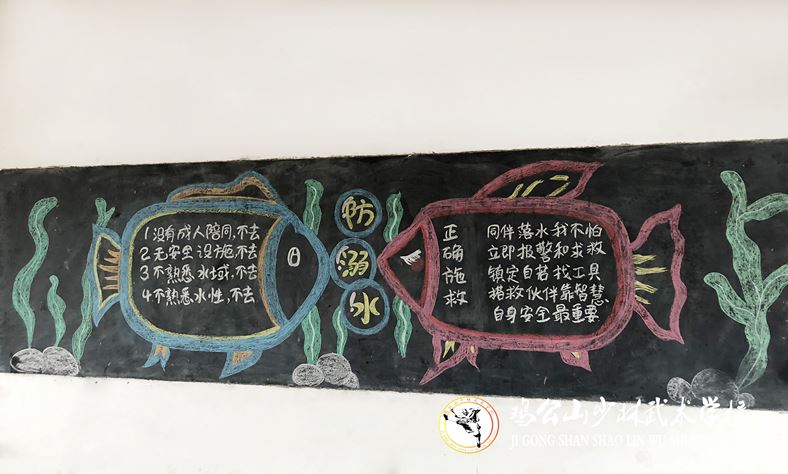 1没有成人陪同,不去
2无安全设施,不去
3不熟悉水域,不去
4不熟悉水性,不去
防
溺
水
正确施救
同伴落水我不怕
立即报警和求救
锁定自若找工具
搭救伙伴靠智慧
自身安全最重要
鸡公山少林武术学校
JI GONG SHAN SHAO LIN WU SHU